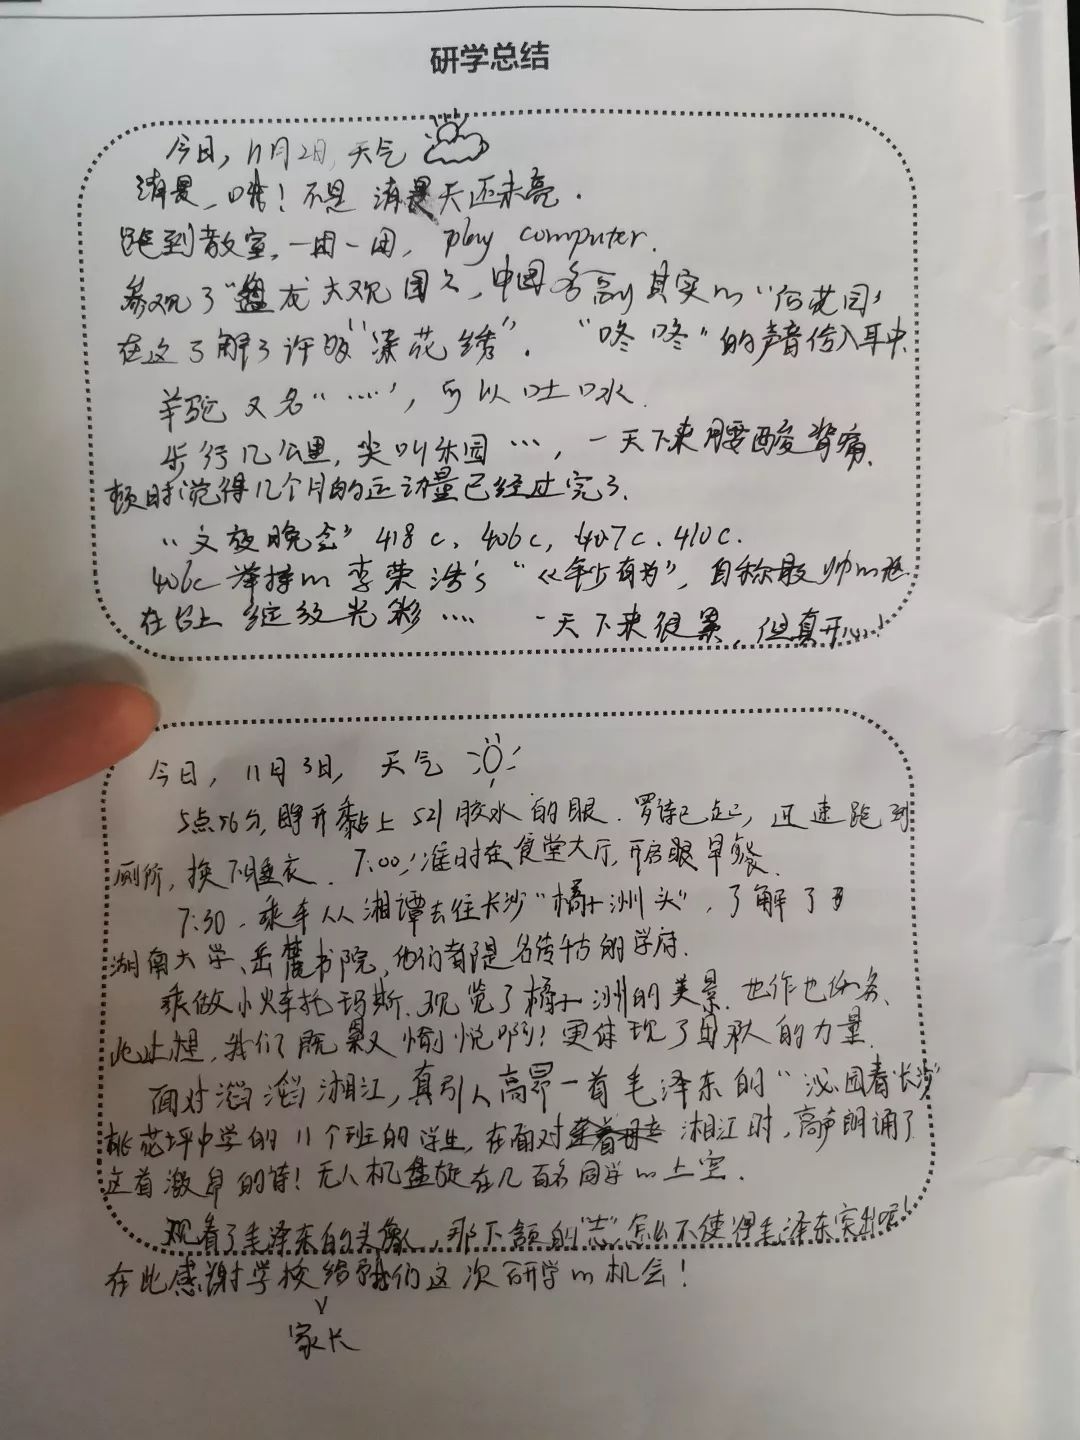 研学总结
今日，11月2日，天气
清晨，哦！不是 清晨天还未亮．
跑到教室，一困一困，play computer.
参观了"盘龙大观园"，中国名副其实m"荷花园"
在这了解了许多"　花绣"．"咚咚"的声音传入耳中
羊驼又名"……"，可以吐口水．
步行几公里，尖叫乐园…，一天下来腰酸背痛．
顿时觉得几个月的运动量已经过完了．
"文放晚会"418c，406c，407c．410c．
406c 举持m李荣浩's"《年少有为》"，自称最帅m
在台上绽放光彩…．一天下来很累，但真开…！
今日，11月3日，天气
5点56分，睁开黏上521胶水的眼．　已起，迅速跑到
厕所，换下睡衣．7:00，准时在食堂大厅，开启眼早餐．
7:30．乘车从湘谭去往长沙"橘子洲头"，了解了
湖南大学、岳麓书院，他们都是名传千古的学府．
乘做小火车托玛斯．观览了橘子洲的美景．也作也任务、
此想，我们既累又愉悦啊！更体现了团队的力量．
面对滔滔湘江，真引人高昂一首毛泽东的"沁园春·长沙"
桃花坪中学的11个班的学生，在面对湘江时，高声朗诵了
这首激昂的诗！无人机盘旋在几百名同学m上空．
观看了毛泽东的头像，那下颔的"志"怎么不使得毛泽东突出呢！
在此感谢学校给予我们这次研学m机会！
家长